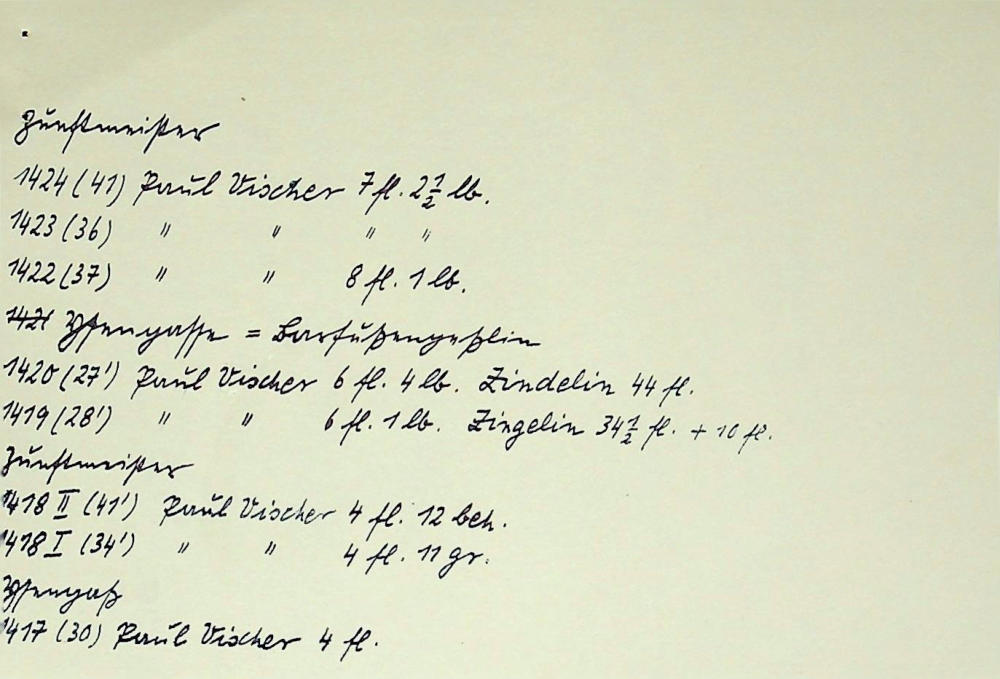 Zunftmeister
1424 (41) Paul Vischer 7 fl. 2½ lb.
1423 (36) " " " "
1422 (37) " " 8 fl. 1 lb.
1421 = Barfüßengeßlin
1420 (27') Paul Vischer 6 fl. 4 lb. Zindelin 44 fl.
1419 (28') " " 6 fl. 1 lb. Zingelin 34½ fl. + 10 fl.
Zunftmeister
1418 II (41') Paul Vischer 4 fl. 12 beh.
1418 I (34') " " 4 fl. 11 gr.
1417 (30) Paul Vischer 4 fl.